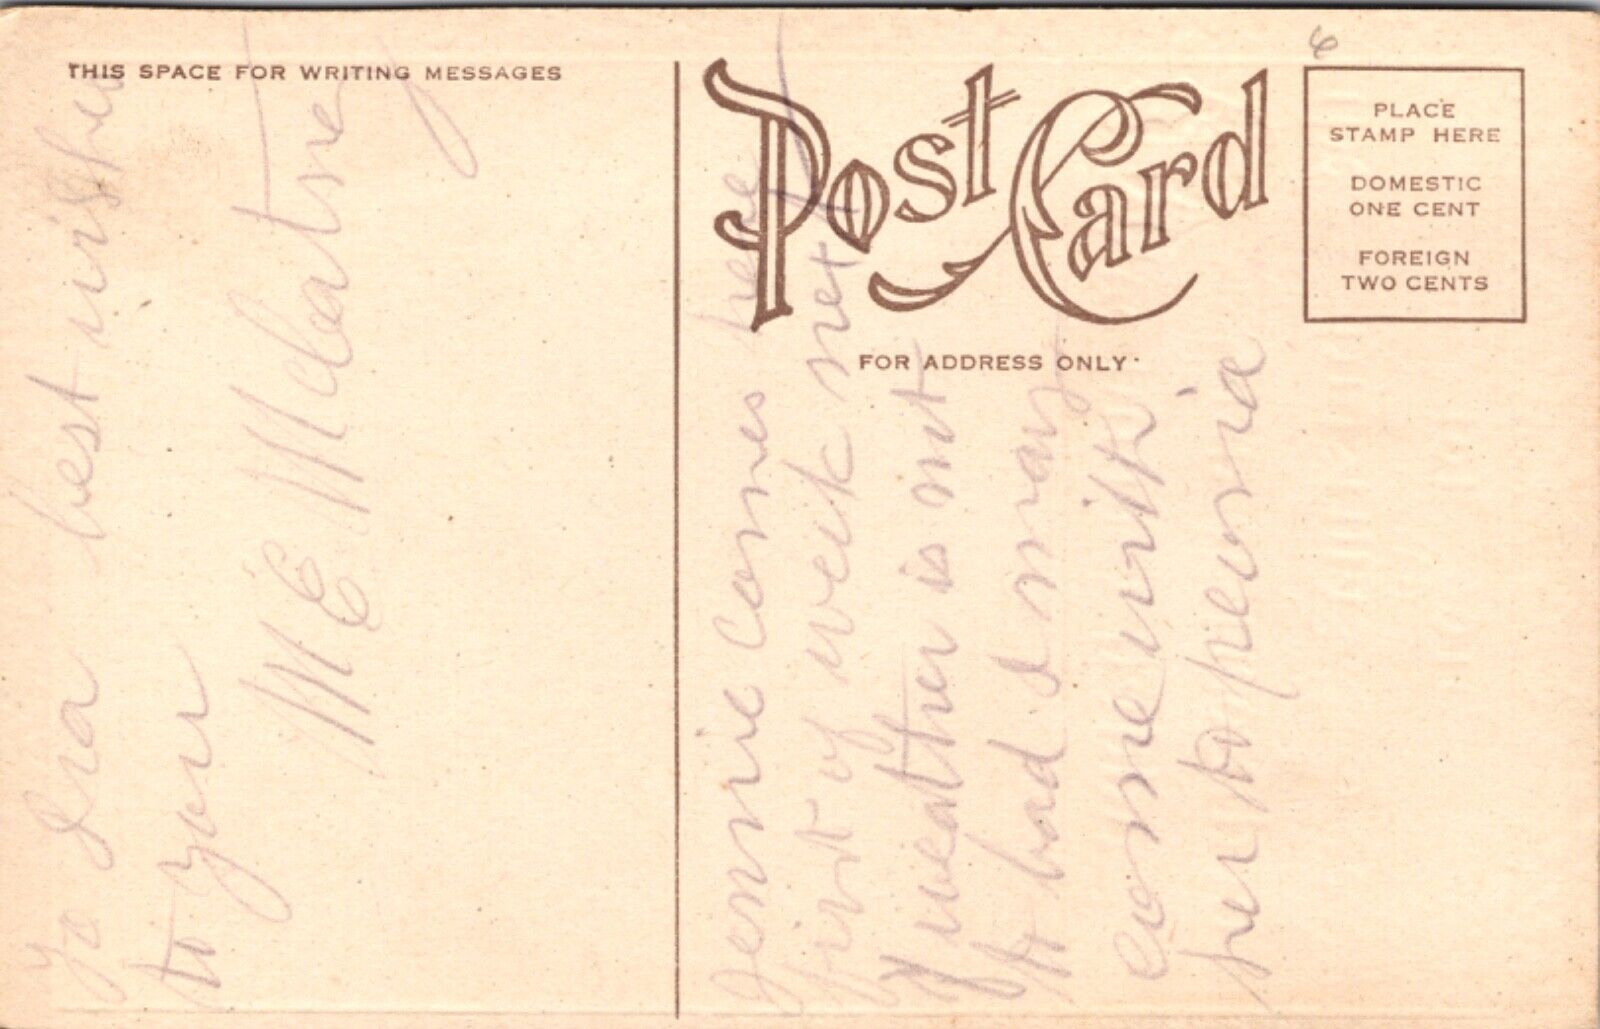 THIS SPACE FOR WRITING MESSAGES
Post Card
PLACE
STAMP HERE
DOMESTIC
ONE CENT
FOREIGN
TWO CENTS
FOR ADDRESS ONLY
6
To Ira best wishes
to your
M E McCartney
Jennie comes here
first of week next
if weather is not
to bad I may
come with
her to peoria